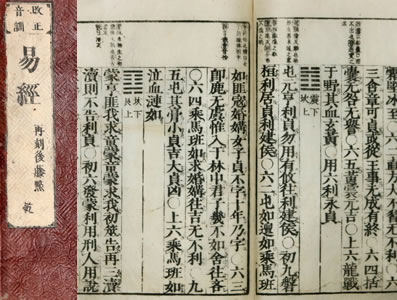 改正
音訓
易經
再刻後藤點
乾
三含章可貞或從王事无成有終○六四括
囊无咎无譽○六五黃裳元吉○上六龍戰
于野其血玄黃○用六利永貞
䷂ 震下坎上
屯元亨利貞勿用有攸往利建侯○初九磐
桓利居貞利建侯○六二屯如邅如乘馬班
如匪寇婚媾女子貞不字十年乃字○六三
即鹿无虞惟入于林中君子幾不如舍往吝
○六四乘馬班如求婚媾往吉无不利○九
五屯其膏小貞吉大貞凶○上六乘馬班如
泣血漣如
䷃ 坎下艮上
蒙亨匪我求童蒙童蒙求我初筮告再三瀆
瀆則不告利貞○初六發蒙利用刑人用說